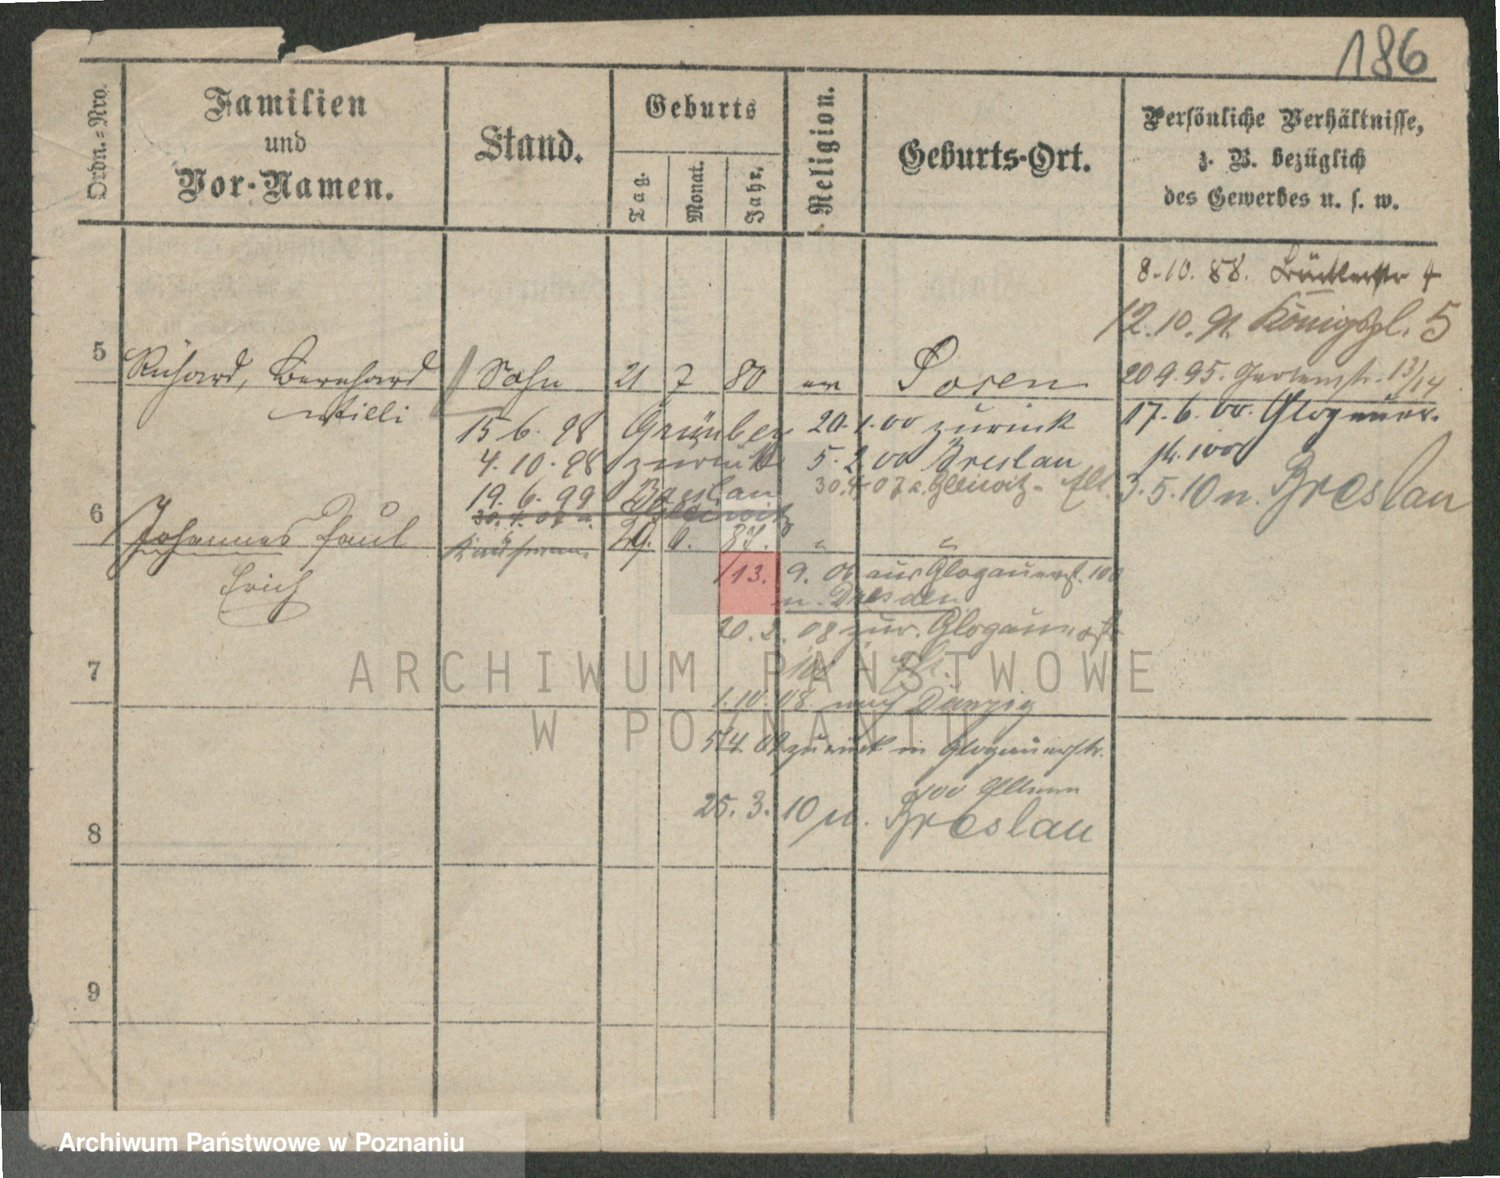 186
Ordn.-Nro.
Familien
und
Vor-Namen.
Stand.
Geburts
Tag.
Monat.
Jahr.
Religion.
Geburts-Ort.
Persönliche Verhältnisse,
z. B. bezüglich
des Gewerbes u. s. w.
8.10.88. 4
12.10.91. Königspl. 5
5
Richard, Bernhard
Willi
Sohn
21 7 80
Posen
20 9.95. Gartenstr. 13/14
15 6. 98 Grünberg
4.10.98 zurück
19.6.99 Breslau
20.1.00 zurück
5.2.00 Breslau
30.4.07 a. Gleiwitz
17.6.00. Glogauer.
14. 100
3.5.10 n. Breslau
6
Johannes Paul
Erich
Kaufmann.
29. 6. 87. " "
13. 9. 06 aus Glogauerst. 100
n. Dresden
20. 2. 08 zur. Glogauerstr
7
1.10.08 nach Danzig
5/4.09 zurück in Glogauerstr.
100 Eltern
8
25.3.10 n. Breslau
9
ARCHIWUM PAŃSTWOWE
W POZNANIU
Archiwum Państwowe w Poznaniu